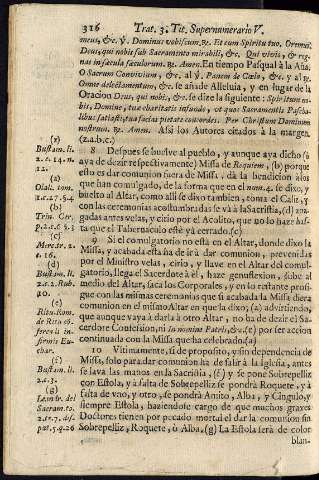 316 Trat. 3. Tit. Supernumerario V.
meus, &c. ỹ. Dominus vobiscum. ℟. Et cum Spiritu tuo. Oremus.
Deus, qui nobis sub Sacramento mirabili, &c. Qui vivis, & reg-
nas in sæcula sæculorum. ℟. Amen. En tiempo Pasqual à la Aña.
O Sacrum Convivium, &c. al ỹ. Panem de Cœlo, &c. y al ℟.
Omne delectamentum, &c. se añade Alleluia, y en lugar de la
Oracion Deus, qui nobis, &c. se dize la siguiente: Spiritum no-
bis, Domine, tuæ charitatis infunde, ut quos Sacramentis Pascha-
libus satiasti, tua facias pietate concordes. Per Christum Dominum
nostrum. ℟. Amen. Assi los Autores citados à la margen.
(z.a.b.c.)
8 Despues se buelve al pueblo, y aunque aya dicho (ù
aya de dezir respectivamente) Missa de Requiem, (b) porque
esto es dar comunion fuera de Missa, dà la bendicion à los
que han comulgado, de la forma que en el num. 4. se dixo, y
buelto al Altar, como alli se dixo tambien, toma el Caliz, y
con las ceremonias acostumbradas se và à la Sacristia, (d) apa-
gadas antes velas, y cirio por el Acolito, que no lo haze has-
ta que el Tabernaculo estè yà cerrado. (c)
9 Si el comulgatorio no està en el Altar, donde dixo la
Missa, y acabada esta ha de ir à dar comunion, prevenidas
por el Ministro velas, cirio, y llave en el Altar del comul-
gatorio, llega el Sacerdote à èl, haze genuflexion, sube al
medio del Altar, saca los Corporales, y en lo restante prosi-
gue con las mismas ceremonias que si acabada la Missa diera
comunion en el mismo Altar en que la dixo, (a) advirtiendo,
que aunque vaya à darla à otro Altar, no ha de dezir el Sa-
cerdote Confession, ni In nomine Patris, &c. (e) por ser accion
continuada con la Missa que ha celebrado. (a)
10 Vltimamente, si de proposito, y sin dependencia de
Missa, solo para dar comunion ha de salir à la Iglesia, antes
se lava las manos en la Sacristia, (f) y se pone Sobrepelliz
con Estola, y à falta de Sobrepelliz se pondrà Roquete, y à
falta de vno, y otro, se pondrà Amito, Alba, y Cingulo, y
siempre Estola, haziendose cargo de que muchos graves
Doctores tienen por pecado mortal el dar la comunion sin
Sobrepelliz, Roquete, ù Alba. (g) La Estola serà de color
blan-
(z)
Bustam. li.
2. c. 14. n.
12.
(a)
Olalt. tom.
(b)
Trin. Cer.
(c)
Merc. tr. 2.
c. 16.
(d)
Bustam. li.
2. c. 2. Rub.
(e)
Ritu. Rom.
de Ritu of-
ferendi in-
firmis Eu-
char.
(f)
Bustam. li.
2. c. 3.
(g)
Sacram. to.